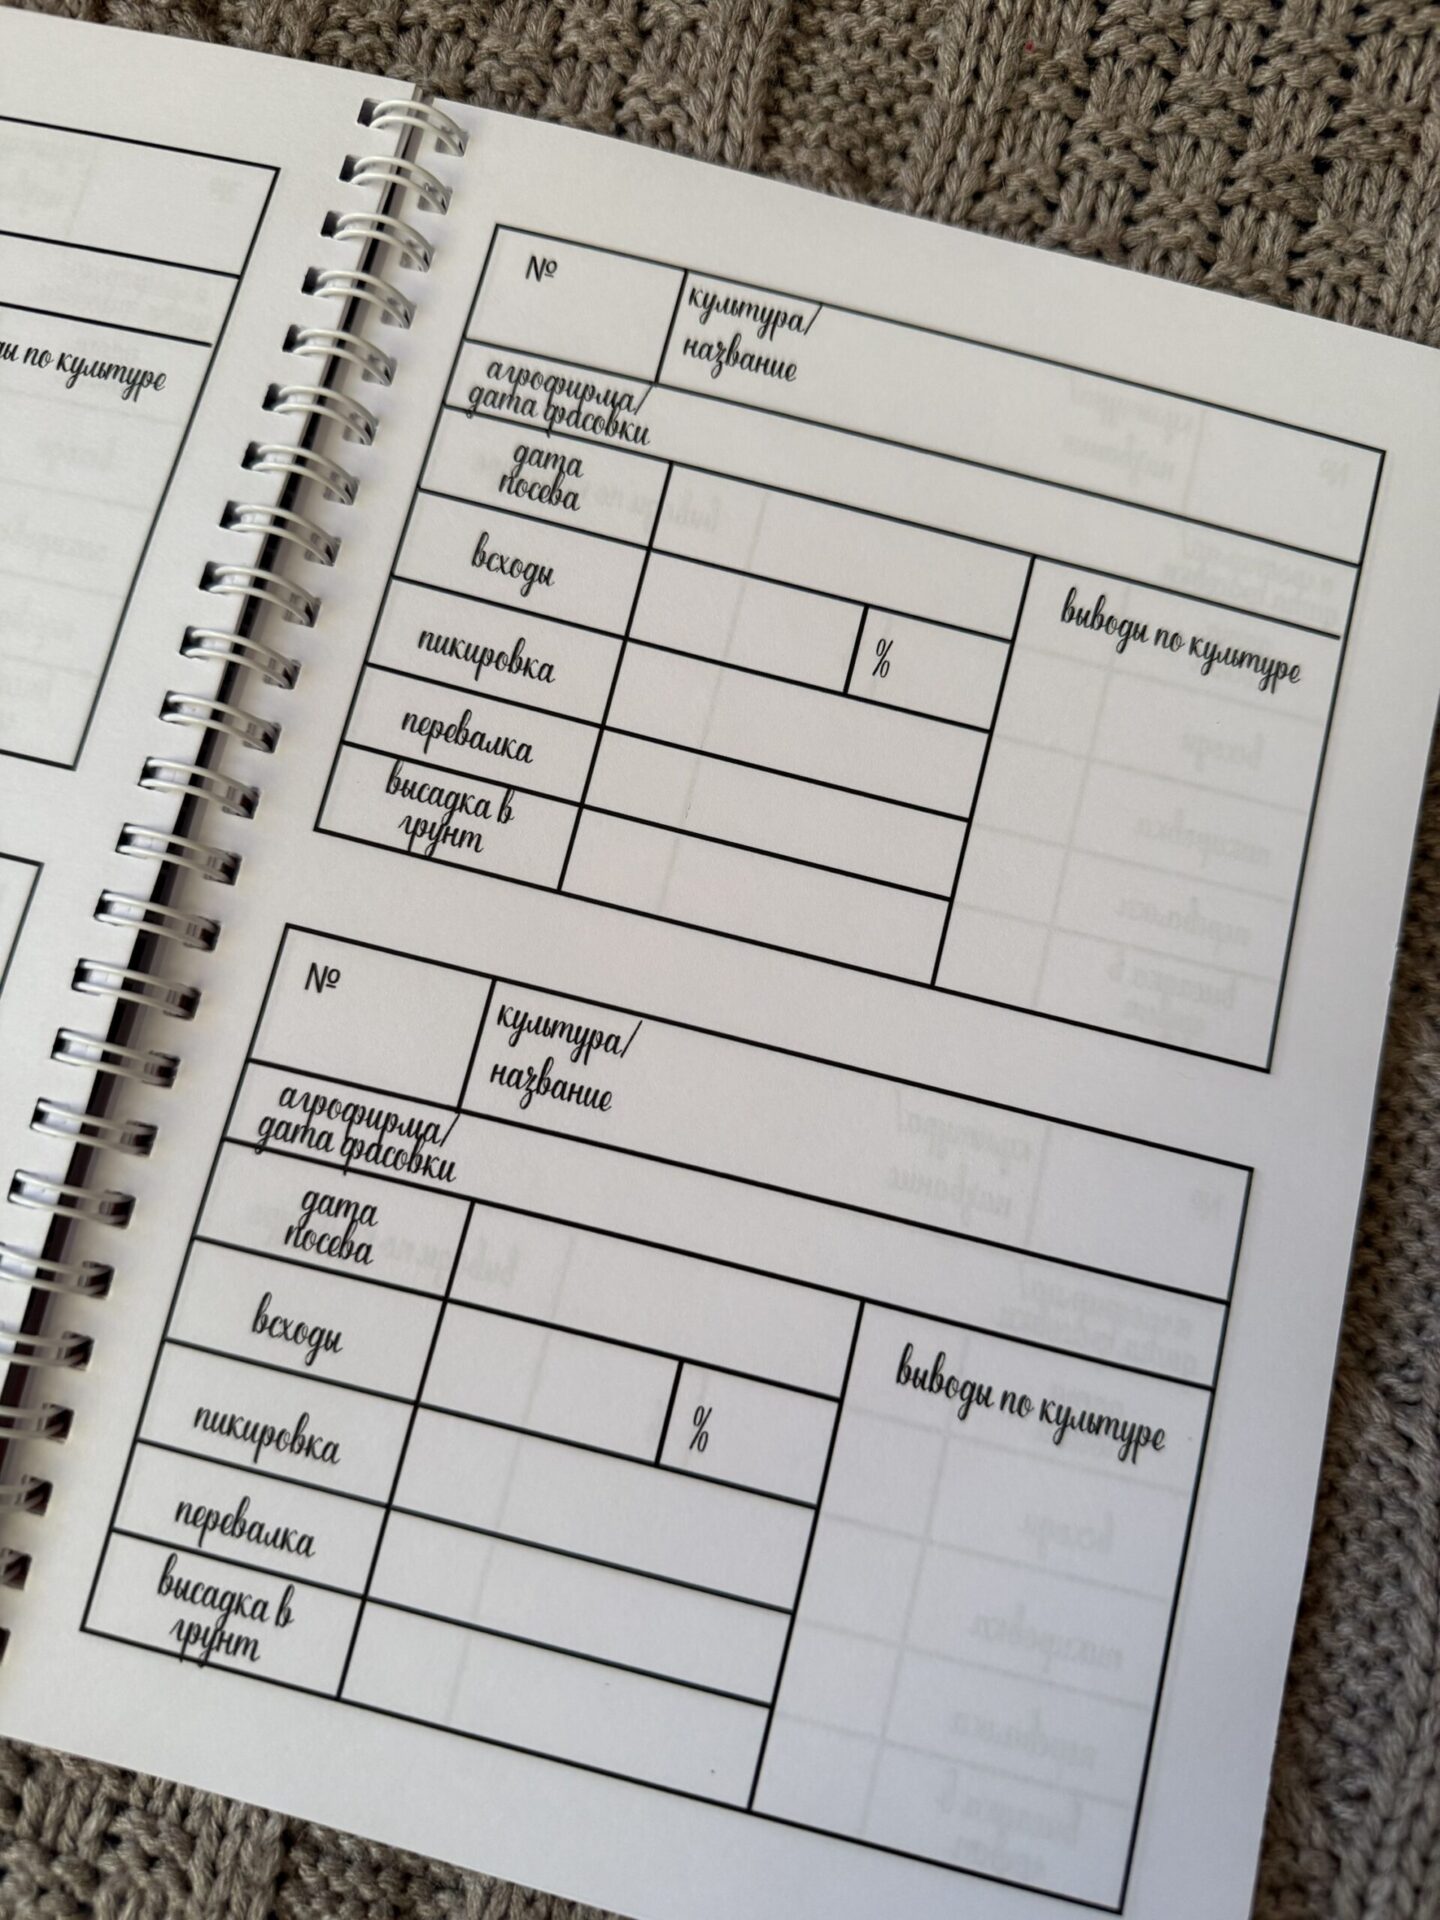 ды по культуре
№
культура/
название
агрофирма/
дата фасовки
дата
посева
всходы
%
выводы по культуре
пикировка
перевалка
высадка в
грунт
№
культура/
название
агрофирма/
дата фасовки
дата
посева
всходы
%
выводы по культуре
пикировка
перевалка
высадка в
грунт